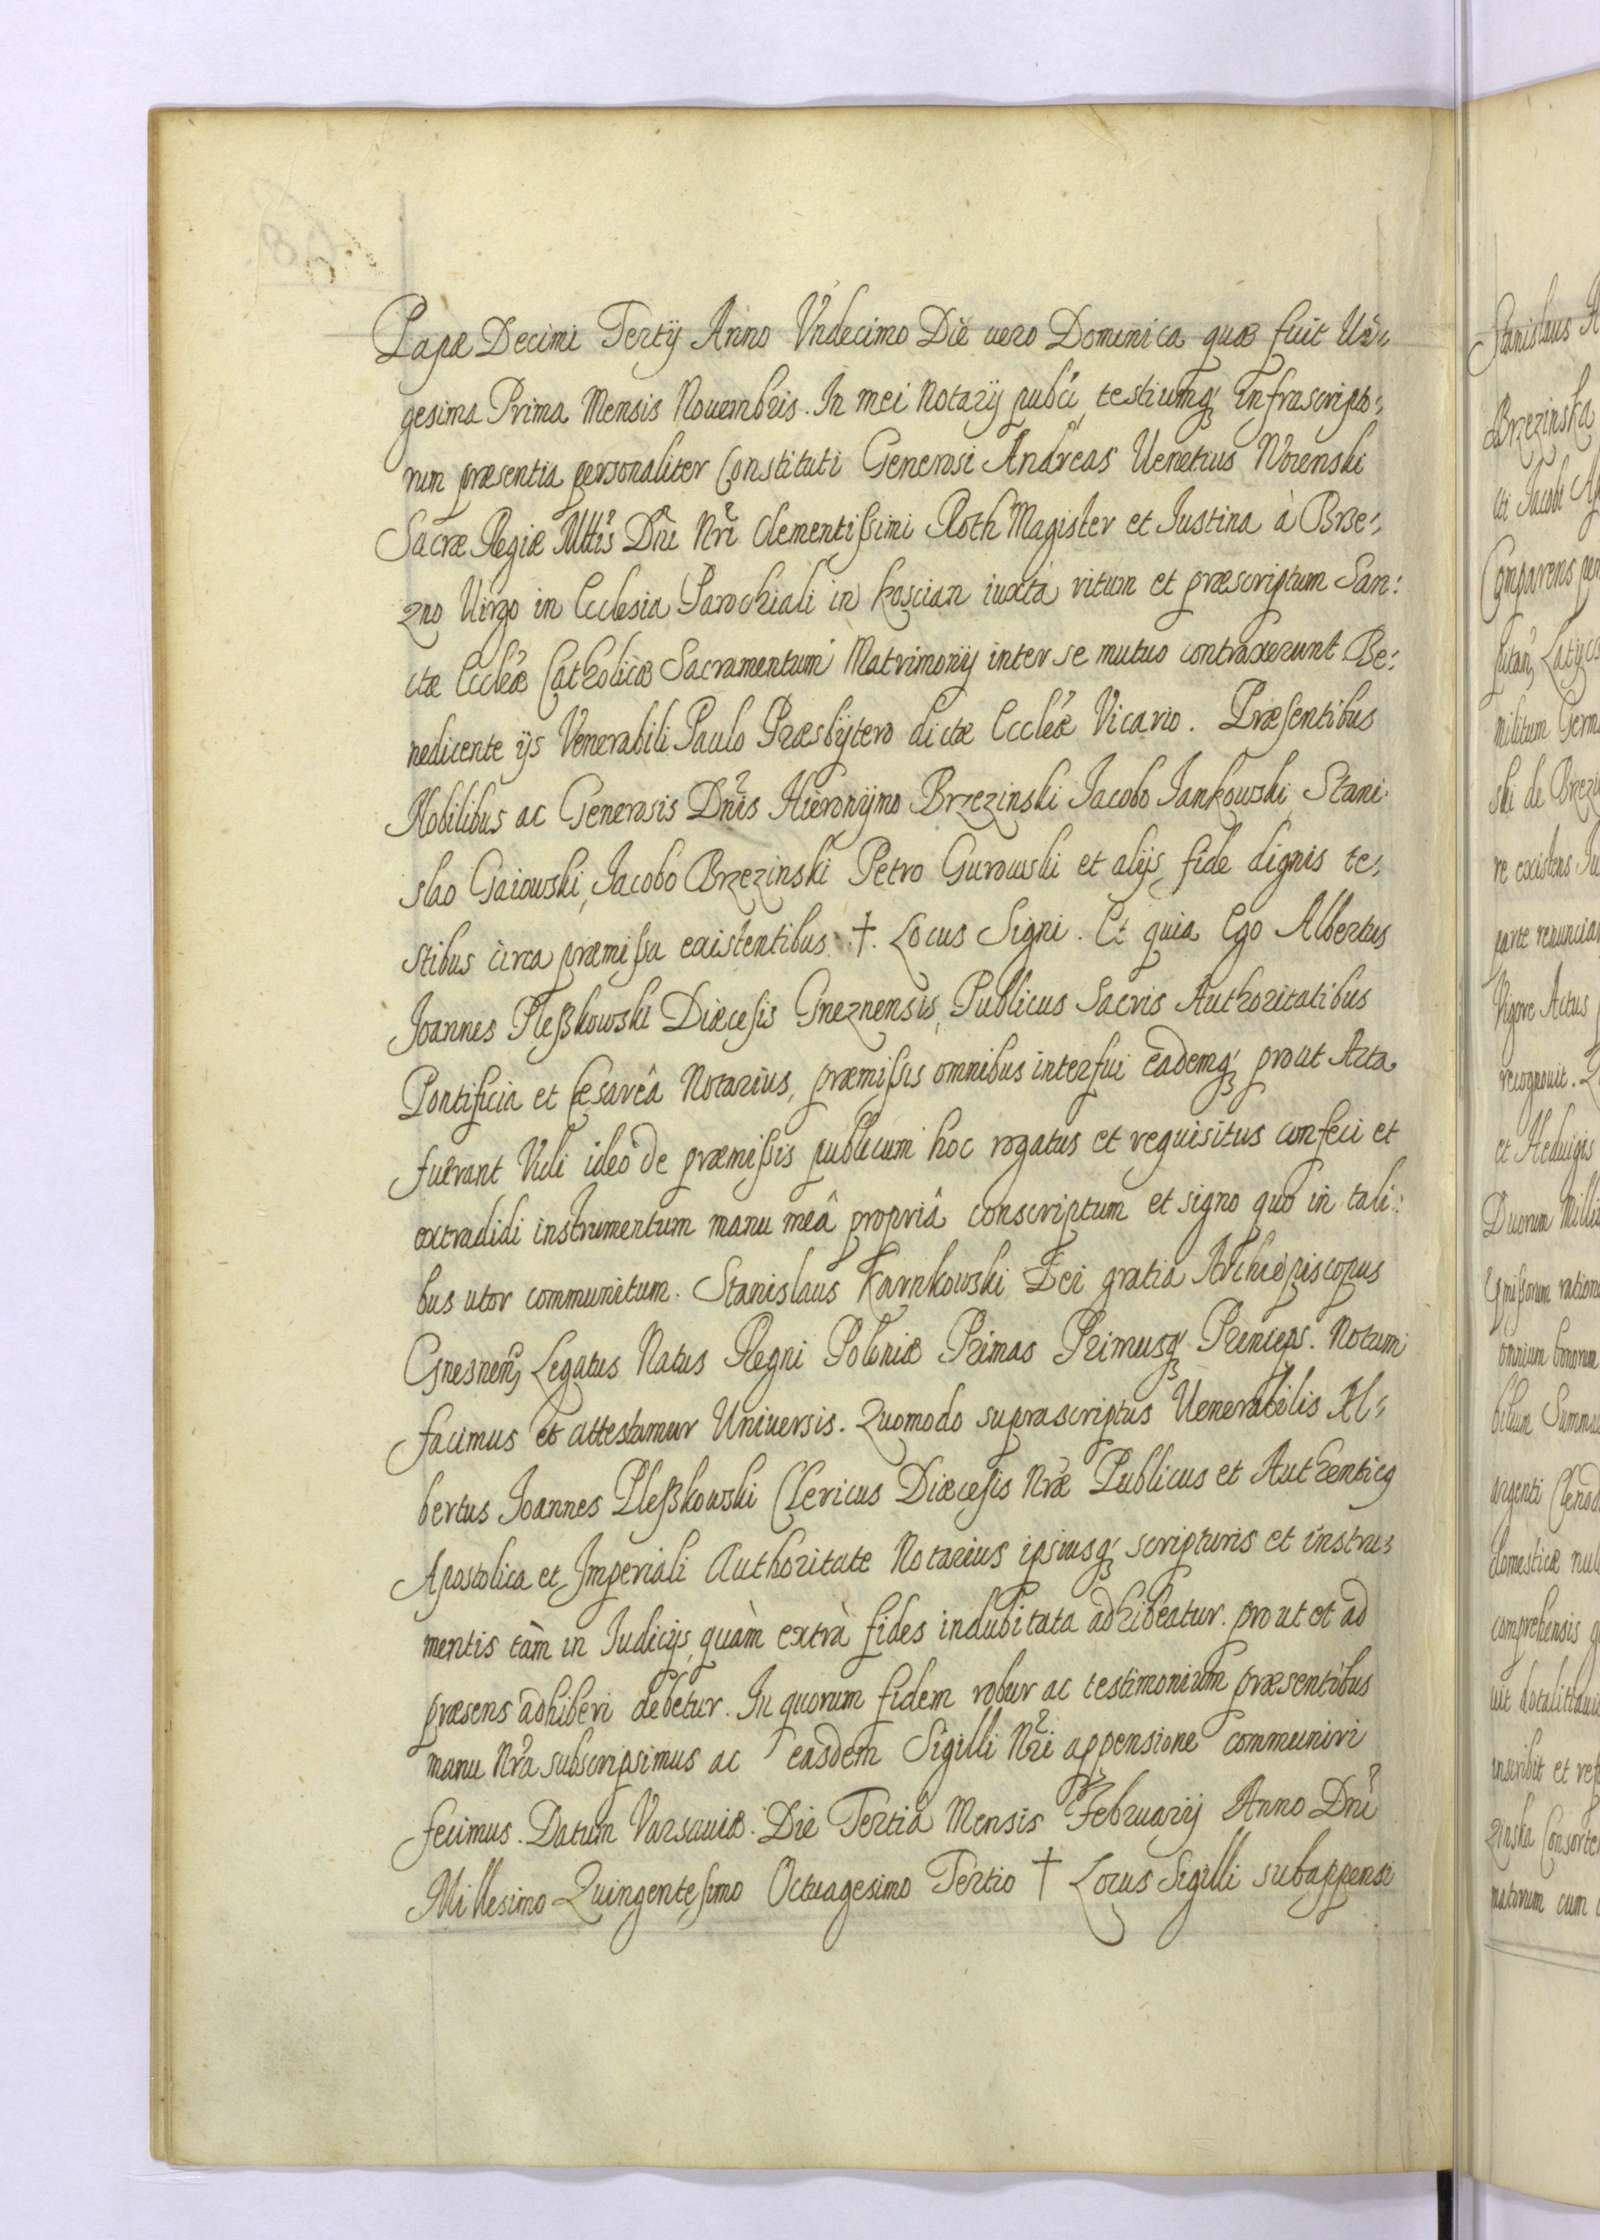 Papæ Decimi Tertÿ Anno Vndecimo Die uero Dominica quæ fuit Ui⸗
gesima Prima Mensis Nouembris. In mei Notarÿ pubci testiumq̃ Infrascripto⸗
rum præsentia personaliter Constituti Generosi Andreas Uenetius Norenski
Sacræ Regiæ Mttis Dni Nri Clementißimi Roth Magister et Iustina à Brze⸗
zno Uirgo in Ecclesia Parochiali in Koscian iuxta ritum et præscriptum San⸗
ctæ Eccleæ Catholicæ Sacramentum Matrimonÿ inter se mutuo contraxerunt Be⸗
nedicente ÿs Venerabili Paulo Præsbÿtero dictæ Eccleæ Vicario. Præsentibus
Nobilibus ac Generosis Dnis Hieronÿmo Brzezinski Iacobo Iankowski, Stani⸗
slao Gaiowski, Iacobo Brzezinski Petro Gurowski et alÿs fide dignis te⸗
stibus circa præmissa existentibus. †. Locus Signi. Et quia Ego Albertus
Joannes Pleßkowski Diæcesis Gneznensis, Publicus Sacris Authoritatibus
Pontificia et Cæsareâ Notarius, præmißis omnibus interfui eademq̃ prout Acta
fuerant Vidi ideò de præmißis publicum hoc rogatus et requisitus confeci et
extradidi instrumentum manu meâ propriâ conscriptum et signo quo in tali⸗
bus utor communitum. Stanislaus Karnkowski Dei gratia Archiepiscopus
Gnesnen, Legatus Natus Regni Poloniæ Primas Primusq̃ Princeps. Notum
facimus et attestamur Uniuersis. Quomodo suprascriptus Uenerabilis Al⸗
bertus Joannes Pleßkowski Clericus Diæcesis Nræ Publicus et Authenticq
Apostolica et Imperiali Authoritate Notarius ipsiusq̃ scripturis et instru⸗
mentis tàm in Iudicÿs, quàm extrà fides indubitata adhibeatur. prout et ad
præsens adhiberi debetur. In quorum fidem robur ac testimonium præsentibus
manu Nra subscripsimus ac easdem Sigilli Nri appensione communiri
fecimus. Datum Varsauiæ. Die Tertia Mensis Februarÿ Anno Dni
Millesimo Quingentesimo Octuagesimo Tertio † Locus Sigilli subappensi
Stanislaus
Brzezinska
cti Jacobi
Comparens
militum Germ
ski de Brzez
re existens
parte renuncia
Vigore Actus
recognouit.
et Heduigis
Duorum Milli
omnium bonorum
bilium Summa
argenti Clenod
domesticæ
comprehensis
inscribit et
zinska Consorte
natorum cum